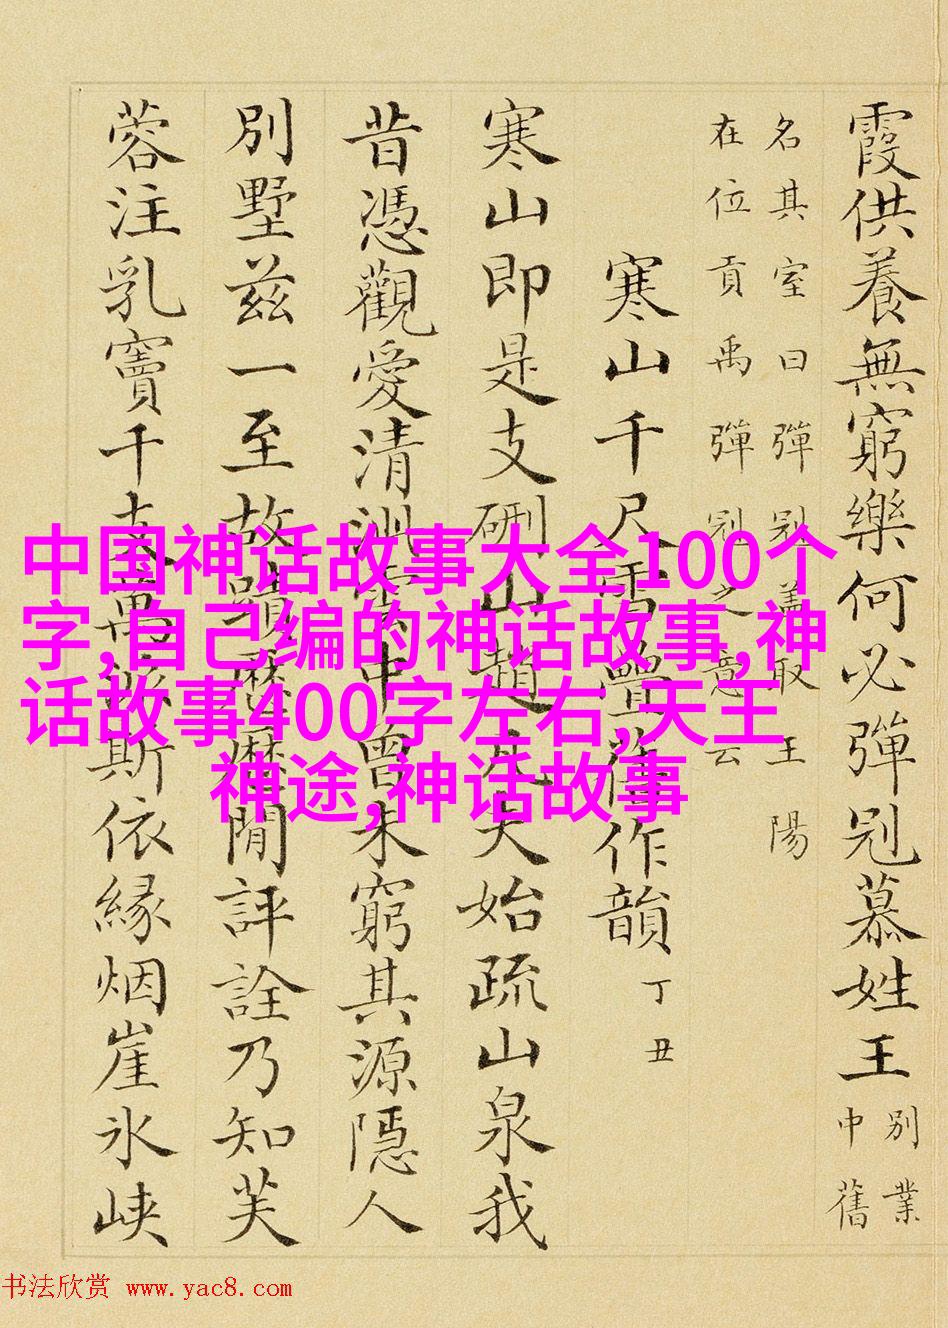 霞供養無窮樂何必彈冠慕姓王
別業
中舊
名其室曰彈冠蓋取王陽
在位貢禹彈冠之意云
寒山千尺雪疊作韻 丁丑
寒山即是支硎山趙凡夫始疏山泉我
昔憑觀愛清中曾未窮其源隱人
別墅茲一至故蹟歷歷閒評詮乃知芙
蓉注乳竇千萬斯依緣烟崖氷峽
中国神话故事大全100个
字,自己编的神话故事,神
话故事400字左右,天王
神途,神话故事
书法欣赏 www.yac8.com